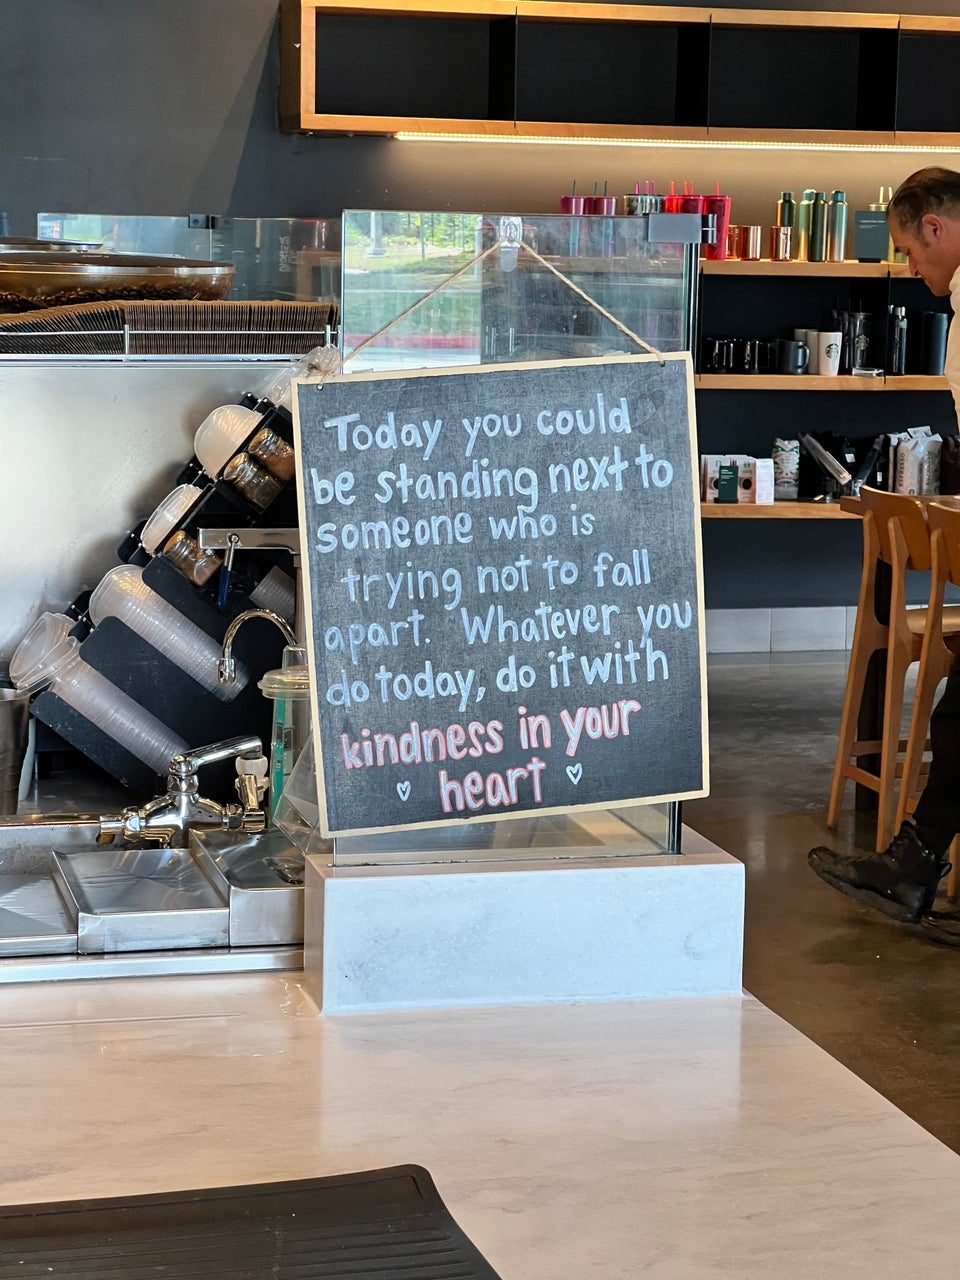 Today you could
be standing next to
someone who is
trying not to fall
apart. Whatever you
do today, do it with
kindness in your
heart